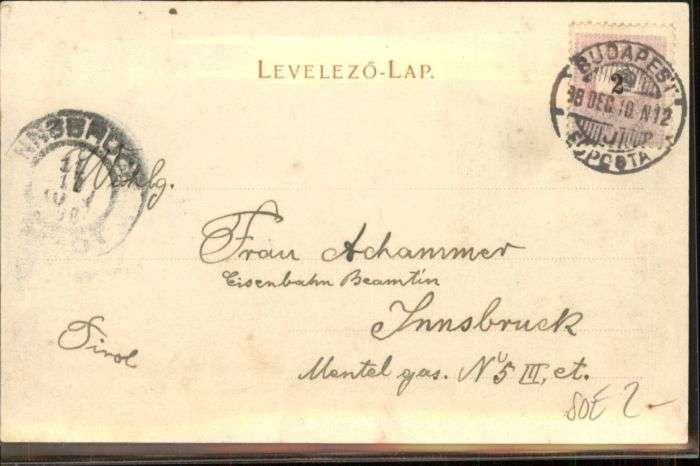 LEVELEZŐ-LAP.
BUDAPEST
2
98 DEC 10 N12
FŐPOSTA
Wohlg.
Frau Achammer
Eisenbahn Beamtin
Innsbruck
Tirol
Mentel gas. No 5 III, et.
80E 2-